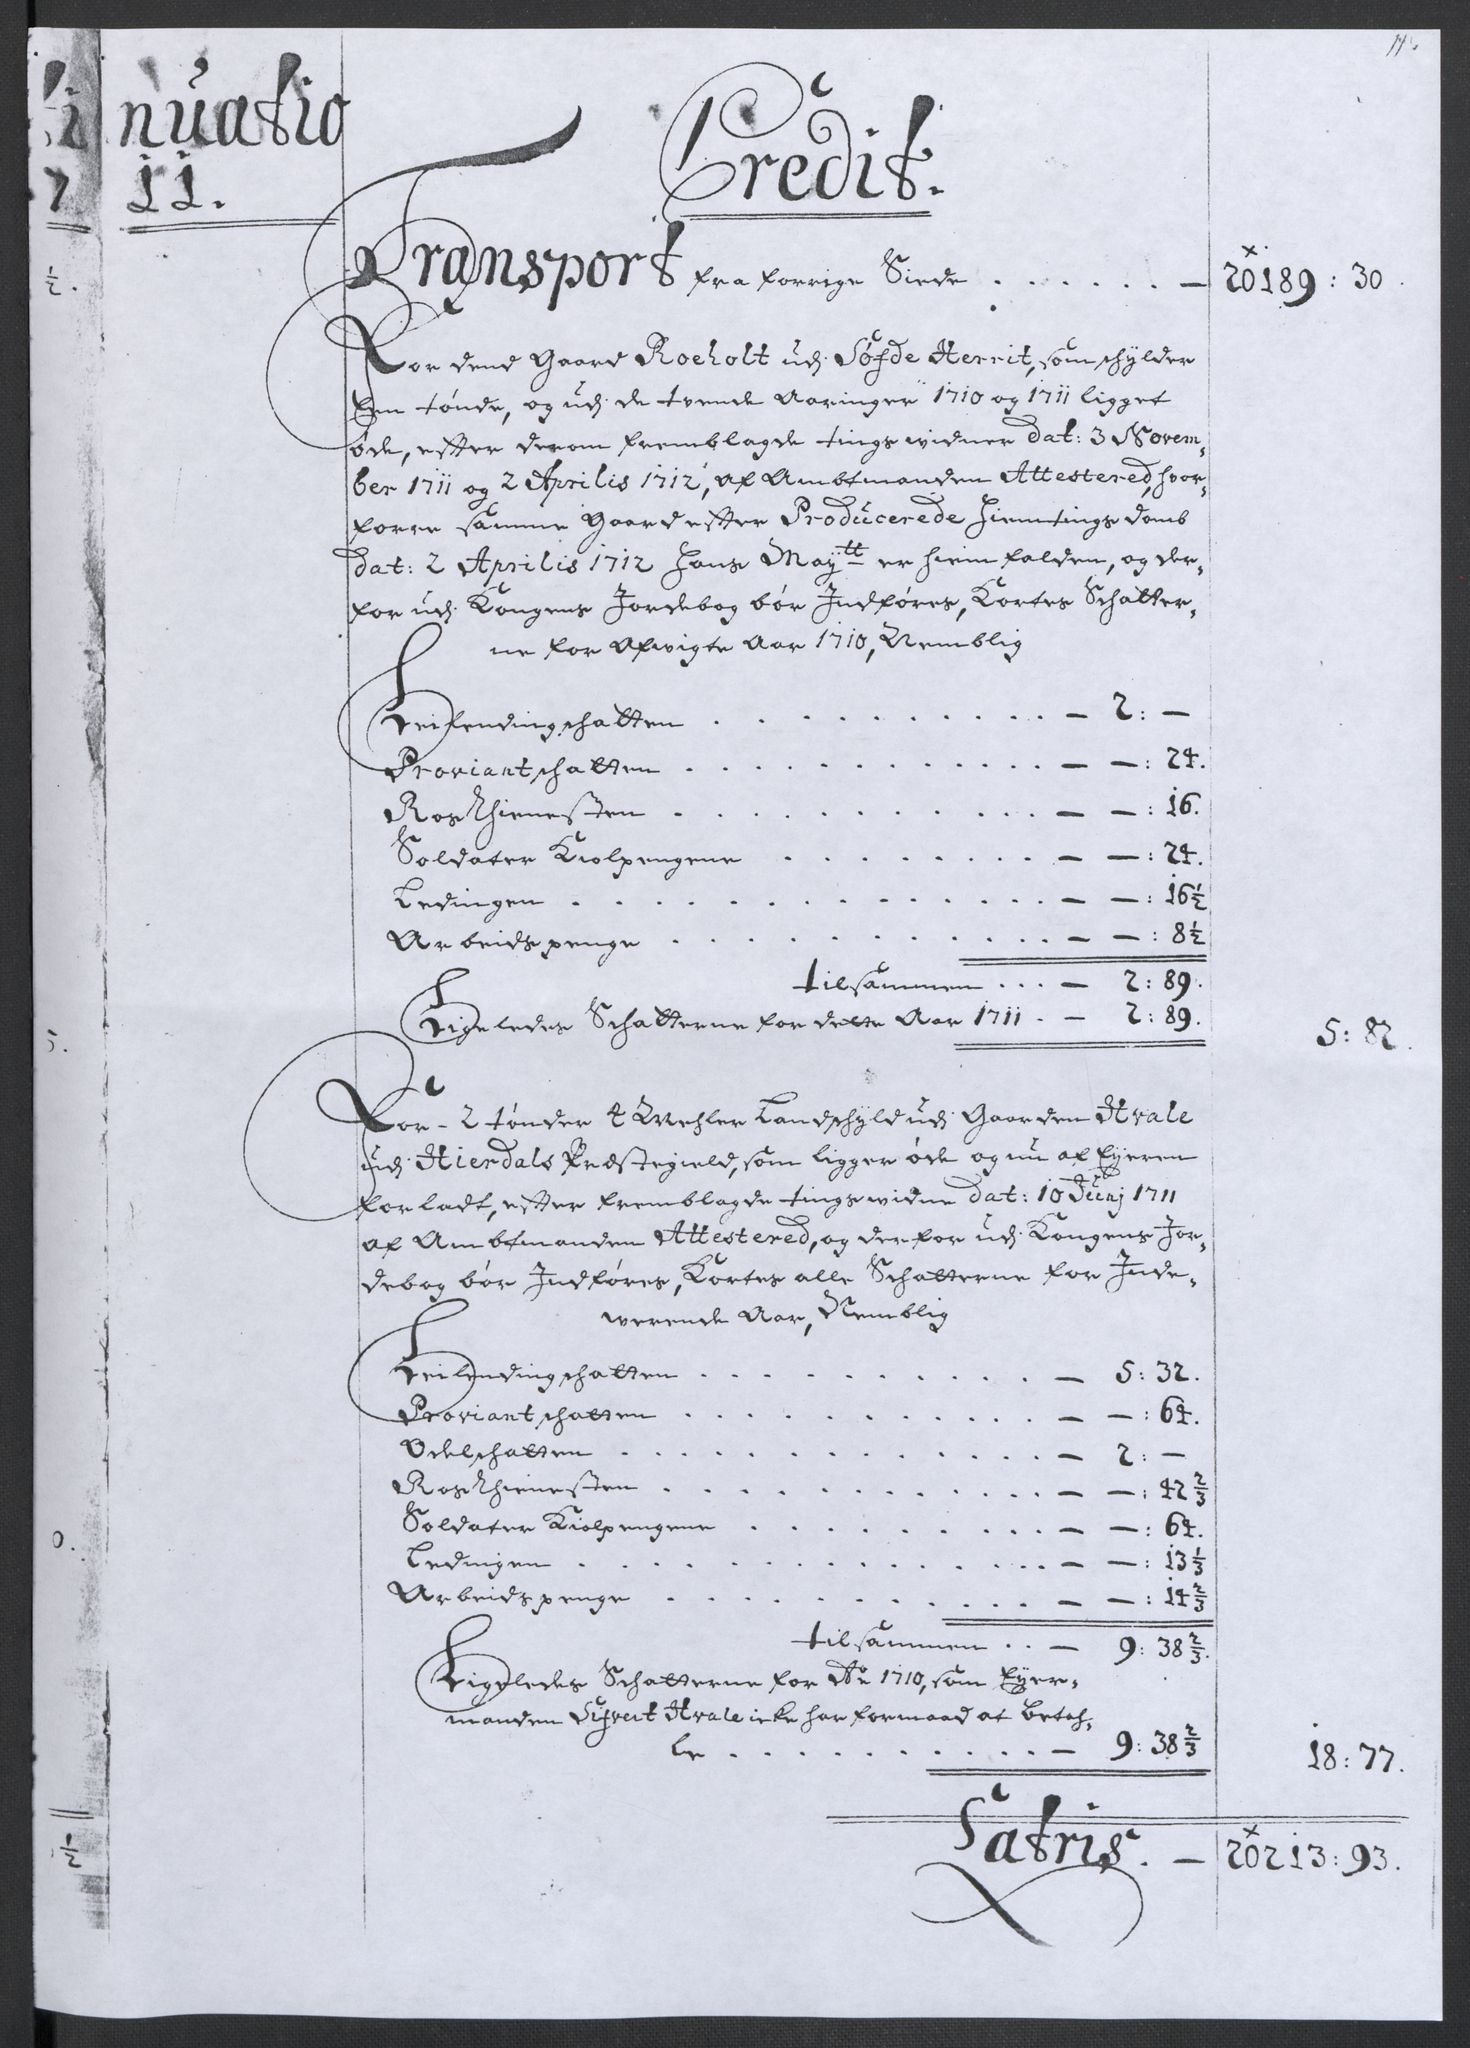 inuatio
11.
Credit.
Transport fra forrige Siede . . . . . . — 20189 : 30.
For dend Gaard Roeholt udj Söfde Herrit, som schylder
Een tønde, og udj de tvende Aaringer 1710 og 1711 ligget
øde, efter derom fremblagde tingswidner dat: 3 Novem-
ber 1711 og 2 Aprilis 1712, af Ambtmanden Attestered, hvor-
forre samme Gaard efter Producerede hiemtings domb
dat: 2 Aprilis 1712 hans Maytt er hiemfalden, og der-
for udj Kongens Jordebog bør Indføres, Kortes Schatter-
ne for Afvigte Aar 1710, Nemblig
Leilendingschatten . . . . . . . . . . — 2: —
Proviantschatten . . . . . . . . . . — —: 24.
Roskthienesten . . . . . . . . . . — —: 16.
Soldater Kiolpengene . . . . . . . . — —: 24.
Ledingen . . . . . . . . . . . . — —: 16½
Arbeidspenge . . . . . . . . . . — —: 8½
tilsammen . . . — 2: 89.
Ligeledes Schatterne for dette Aar 1711 . — 2: 89. 5: 82.
For - 2 tønder 4 Mehler Landschyld udj Gaarden Hvale
udj Hierdals Præstegield, som ligger øde og nu af Eyeren
forladt, efter fremblagde tingswidne dat: 10 Junj 1711
af Ambtmanden Attestered, og derfor udj Kongens Jor-
debog bør Indføres, Kortes alle Schatterne for Inde-
werende Aar, Nemblig
Leilendingschatten . . . . . . . . . — 5: 32.
Proviantschatten . . . . . . . . . — —: 64.
Odelschatten . . . . . . . . . . . — 2: —
Roskthienesten . . . . . . . . . . — —: 42⅔
Soldater Kiolpengene . . . . . . . . — —: 64.
Ledingen . . . . . . . . . . . . — —: 13⅓
Arbeidspenge . . . . . . . . . . — —: 14⅔
tilsammen . . — 9: 38⅔.
Ligeledes Schatterne for Ao 1710, som Eyer-
manden Sifvert Hvale icke har formaad at betah-
le . . . . . . . . . . . — 9: 38⅔ 18: 77.
Latris. — 20213: 93.